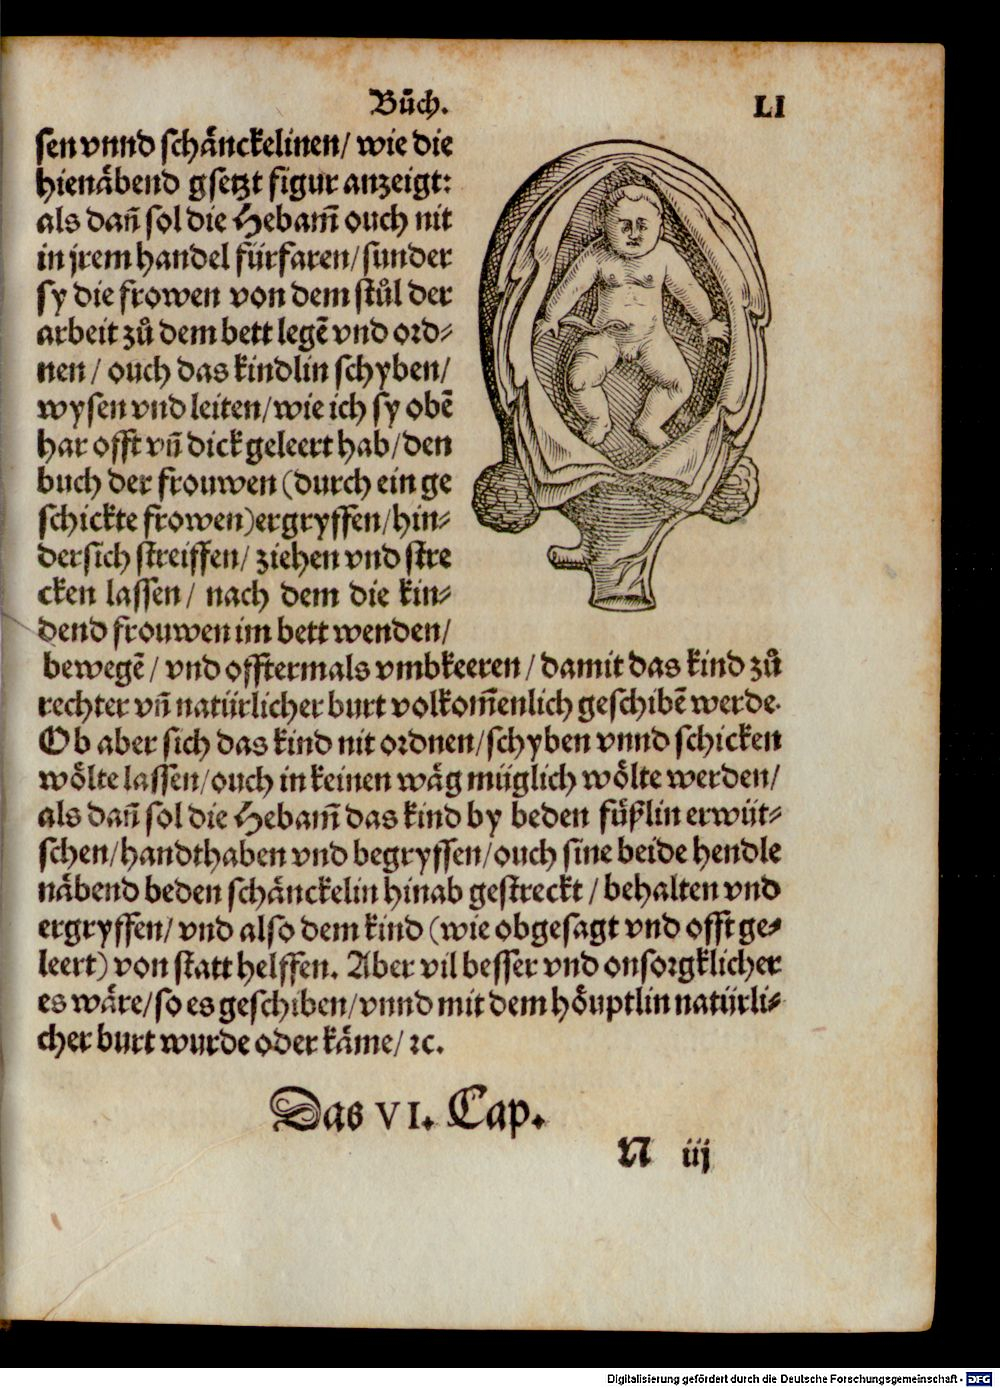 Bůch.
LI
sen vnnd schänckelinen/ wie die
hienäbend gsetzt figur anzeigt:
als dañ sol die Hebam̃ ouch nit
in jrem handel fürfaren/ sunder
sy die frowen von dem stůl der
arbeit zů dem bett legẽ vnd ord⸗
nen/ ouch das kindlin schyben/
wysen vnd leiten/ wie ich sy obẽ
har offt vñ dick geleert hab/ den
buch der frouwen (durch ein ge
schickte frowen) ergryffen/ hin⸗
dersich streiffen/ ziehen vnd stre
cken lassen/ nach dem die kin⸗
dend frouwen im bett wenden/
bewegẽ/ vnd offtermals vmbkeeren/ damit das kind zů
rechter vñ natürlicher burt volkom̃enlich geschibẽ werde.
Ob aber sich das kind nit ordnen/ schyben vnnd schicken
wölte lassen/ ouch in keinen wäg müglich wölte werden/
als dañ sol die Hebam̃ das kind by beden füßlin erwüt⸗
schen/ handthaben vnd begryffen/ ouch sine beide hendle
näbend beden schänckelin hinab gestreckt/ behalten vnd
ergryffen/ vnd also dem kind (wie obgesagt vnd offt ge⸗
leert) von statt helffen. Aber vil besser vnd onsorgklicher
es wäre/ so es geschiben/ vnnd mit dem höuptlin natürli⸗
cher burt wurde oder käme/ ꝛc.
Das VI. Cap.
N iij
Digitalisierung gefördert durch die Deutsche Forschungsgemeinschaft - DFG